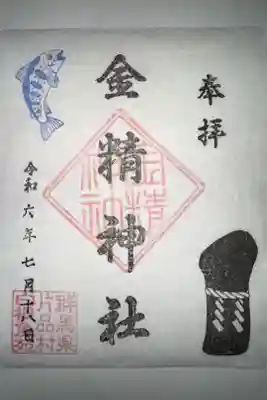 奉拝
金精神社
令和六年七月十八日
金精
神社
群馬県
片品村